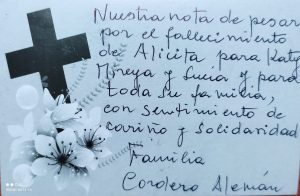 Nuestra nota de pesar
por el fallecimiento
de Alicita, para Katy
Mireya y Lucia y para
toda su familia,
con sentimiento de
cariño y solidaridad
Familia
Cordero Alemán